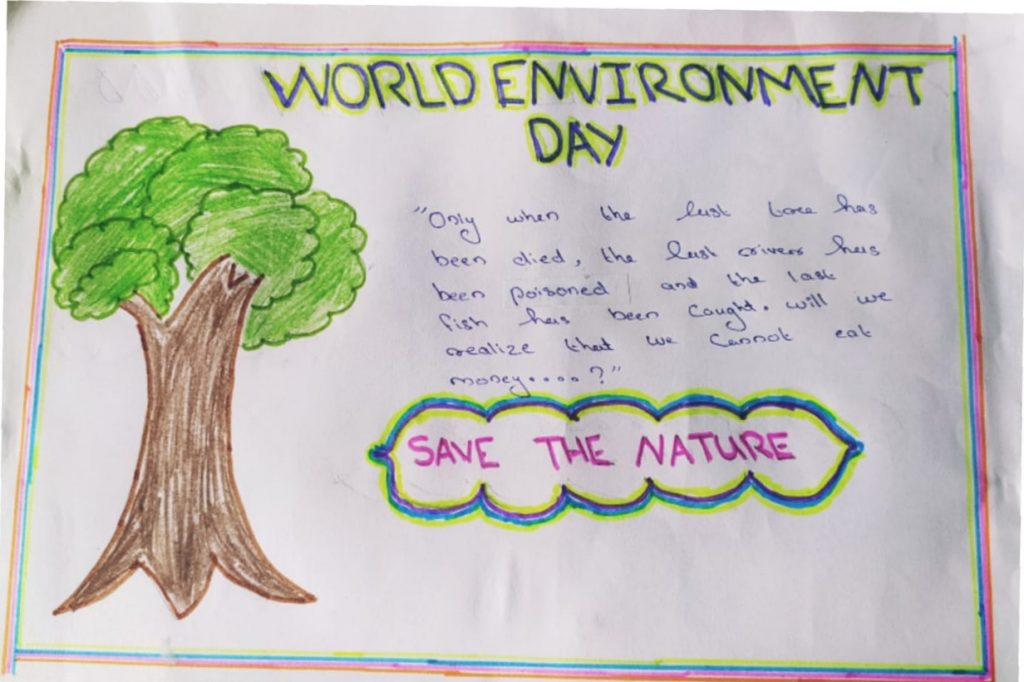 WORLD ENVIRONMENT
DAY
"Only when the last tree has
been died, the last river has
been poisoned and the last
fish has been caught. will we
realize that we cannot eat
money.....?"
SAVE THE NATURE